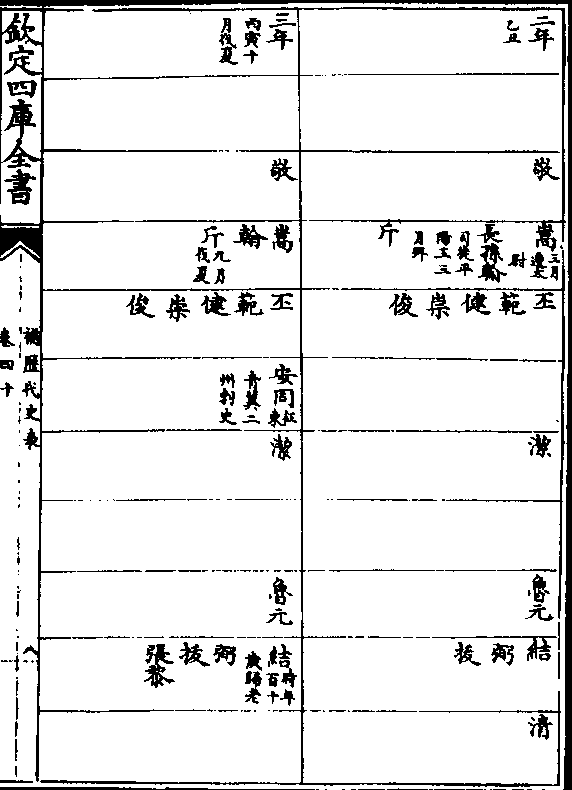 二年 乙丑
敬
嵩 三月遷太尉
長孫翰 司徒平陽王三月拜
斤
丕 範 健 崇 俊
潔
魯元
結 弼 拔
清
三年 丙寅十月伐夏
敬
嵩
翰
斤 九月伐夏
丕 範 健 崇 俊
安同 征東青冀二州刺史
潔
魯元
結 時年百十歲歸老
弼 拔 張黎
欽定四庫全書
補歷代史表
卷四十